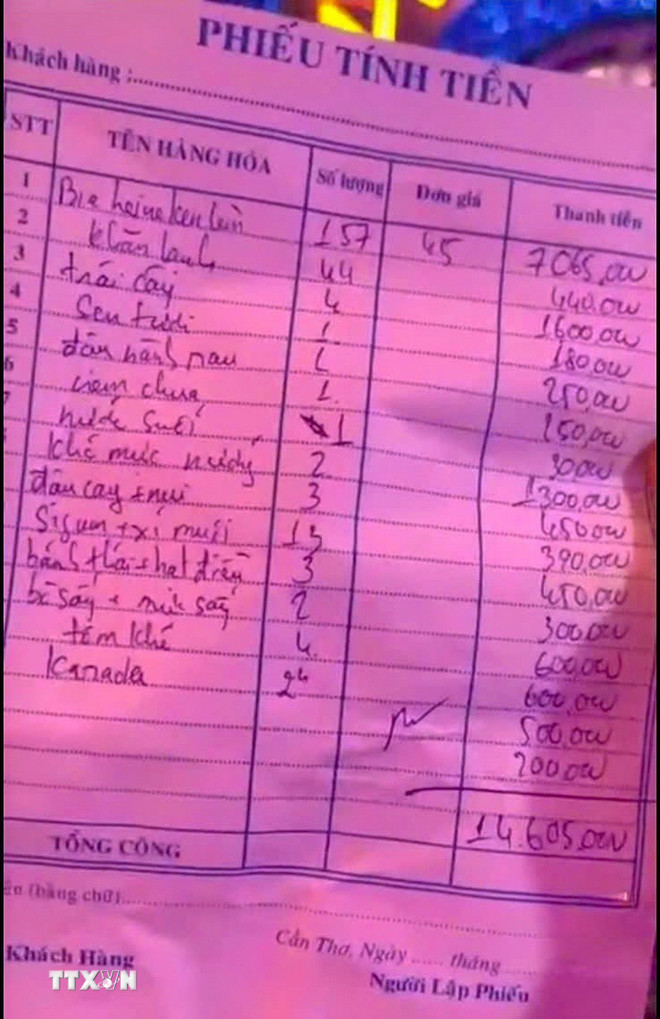 PHIẾU TÍNH TIỀN
Khách hàng :
STT TÊN HÀNG HÓA Số lượng Đơn giá Thành tiền
1 Bia heineken lùn 157 45 7065,00
2 khăn lạnh 44 440.00
3 trái cây 4 1600,00
4 Sen tươi 1 180.00
5 1 250,00
6 1. 150,00
nước suối 1 30.00
Khô mực nướng 2 1300,00
3 450.00
xí muội 13 390,00
bánh + hạt điều 3 450,00
bò sấy + mực sấy 2 300.00
tôm khô 4. 600,00
Kanada 2 600,00
500,00
200.00
14.605,00
TỔNG CỘNG
(bằng chữ)
Cần Thơ, Ngày ...... tháng
Khách Hàng Người Lập Phiếu
TTXVN